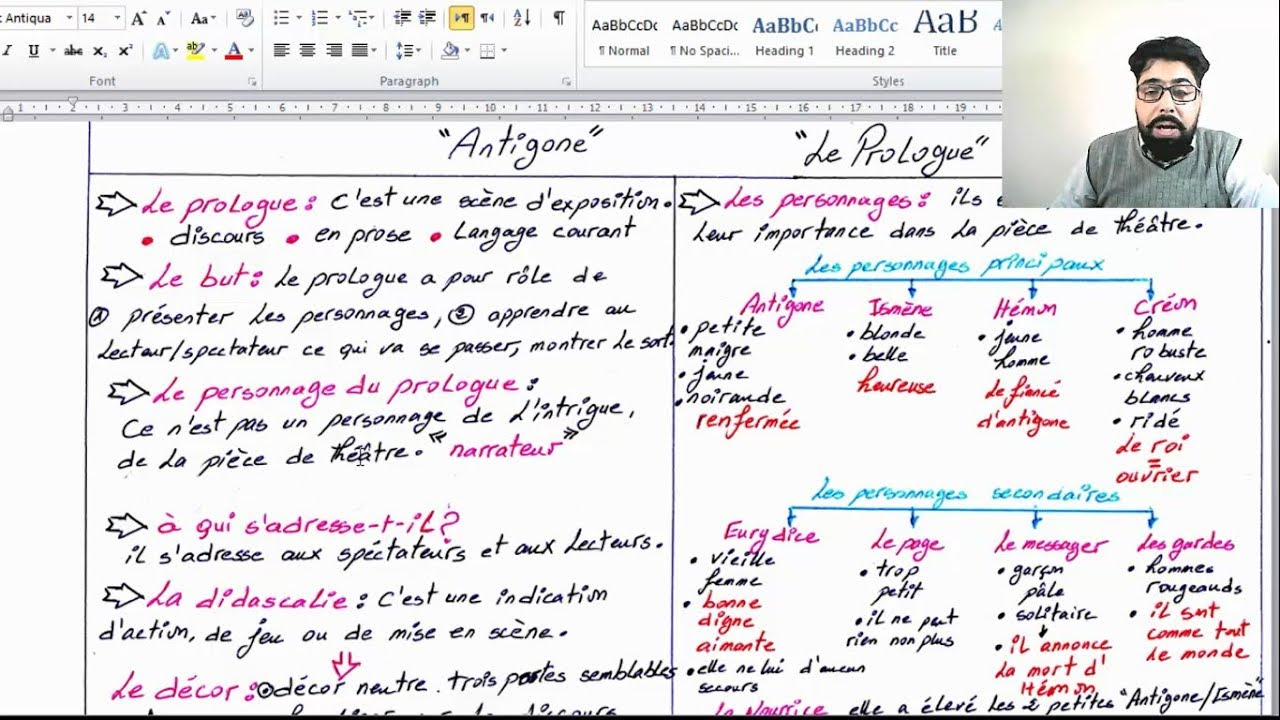 t Antiqua 14 Aa
AaBbCcDc AaBbCcDc AaBbCc AaBbCc AaB
¶ Normal ¶ No Spaci... Heading 1 Heading 2 Title
I U abc x₂ x² A ab A
Font Paragraph Styles
1 1 2 3 4 5 6 7 8 9 10 11 12 13 14 15 16 17 18 19
"Antigone" "Le Prologue"
Le prologue: C'est une scène d'exposition.
• discours • en prose • Langage courant
Le but: Le prologue a pour rôle de
① présenter les personnages, ② apprendre au
Lecteur/spectateur ce qui va se passer, montrer le sort.
Le personnage du prologue:
Ce n'est pas un personnage de l'intrigue,
de la pièce de théâtre. « narrateur »
à qui s'adresse-t-il?
il s'adresse aux spéctateurs et aux Lecteurs.
La didascalie: C'est une indication
d'action, de jeu ou de mise en scène.
Le décor: décor neutre. trois portes semblables
Les personnages: ils
Leur importance dans la pièce de théâtre.
Les personnages principaux
Antigone
• petite
maigre
• jeune
• noiraude
renfermée
Ismène
• blonde
• belle
heureuse
Hémon
• jeune
homme
Le fiancé
d'antigone
Créon
• homme
robuste
• cheveux
blancs
• ridé
Le roi
=
ouvrier
Les personnages secondaires
Eurydice
• vieille
femme
• bonne
digne
aimante
• elle ne lui d'aucun
secours
Le page
• trop
petit
• il ne peut
rien non plus
Le messager
• garçon
pâle
• solitaire
• il annonce
la mort d'
Hémon
Les gardes
• hommes
rougeauds
• il sont
comme tout
le monde
La Nourrice elle a élevé les 2 petites "Antigone/Ismène"